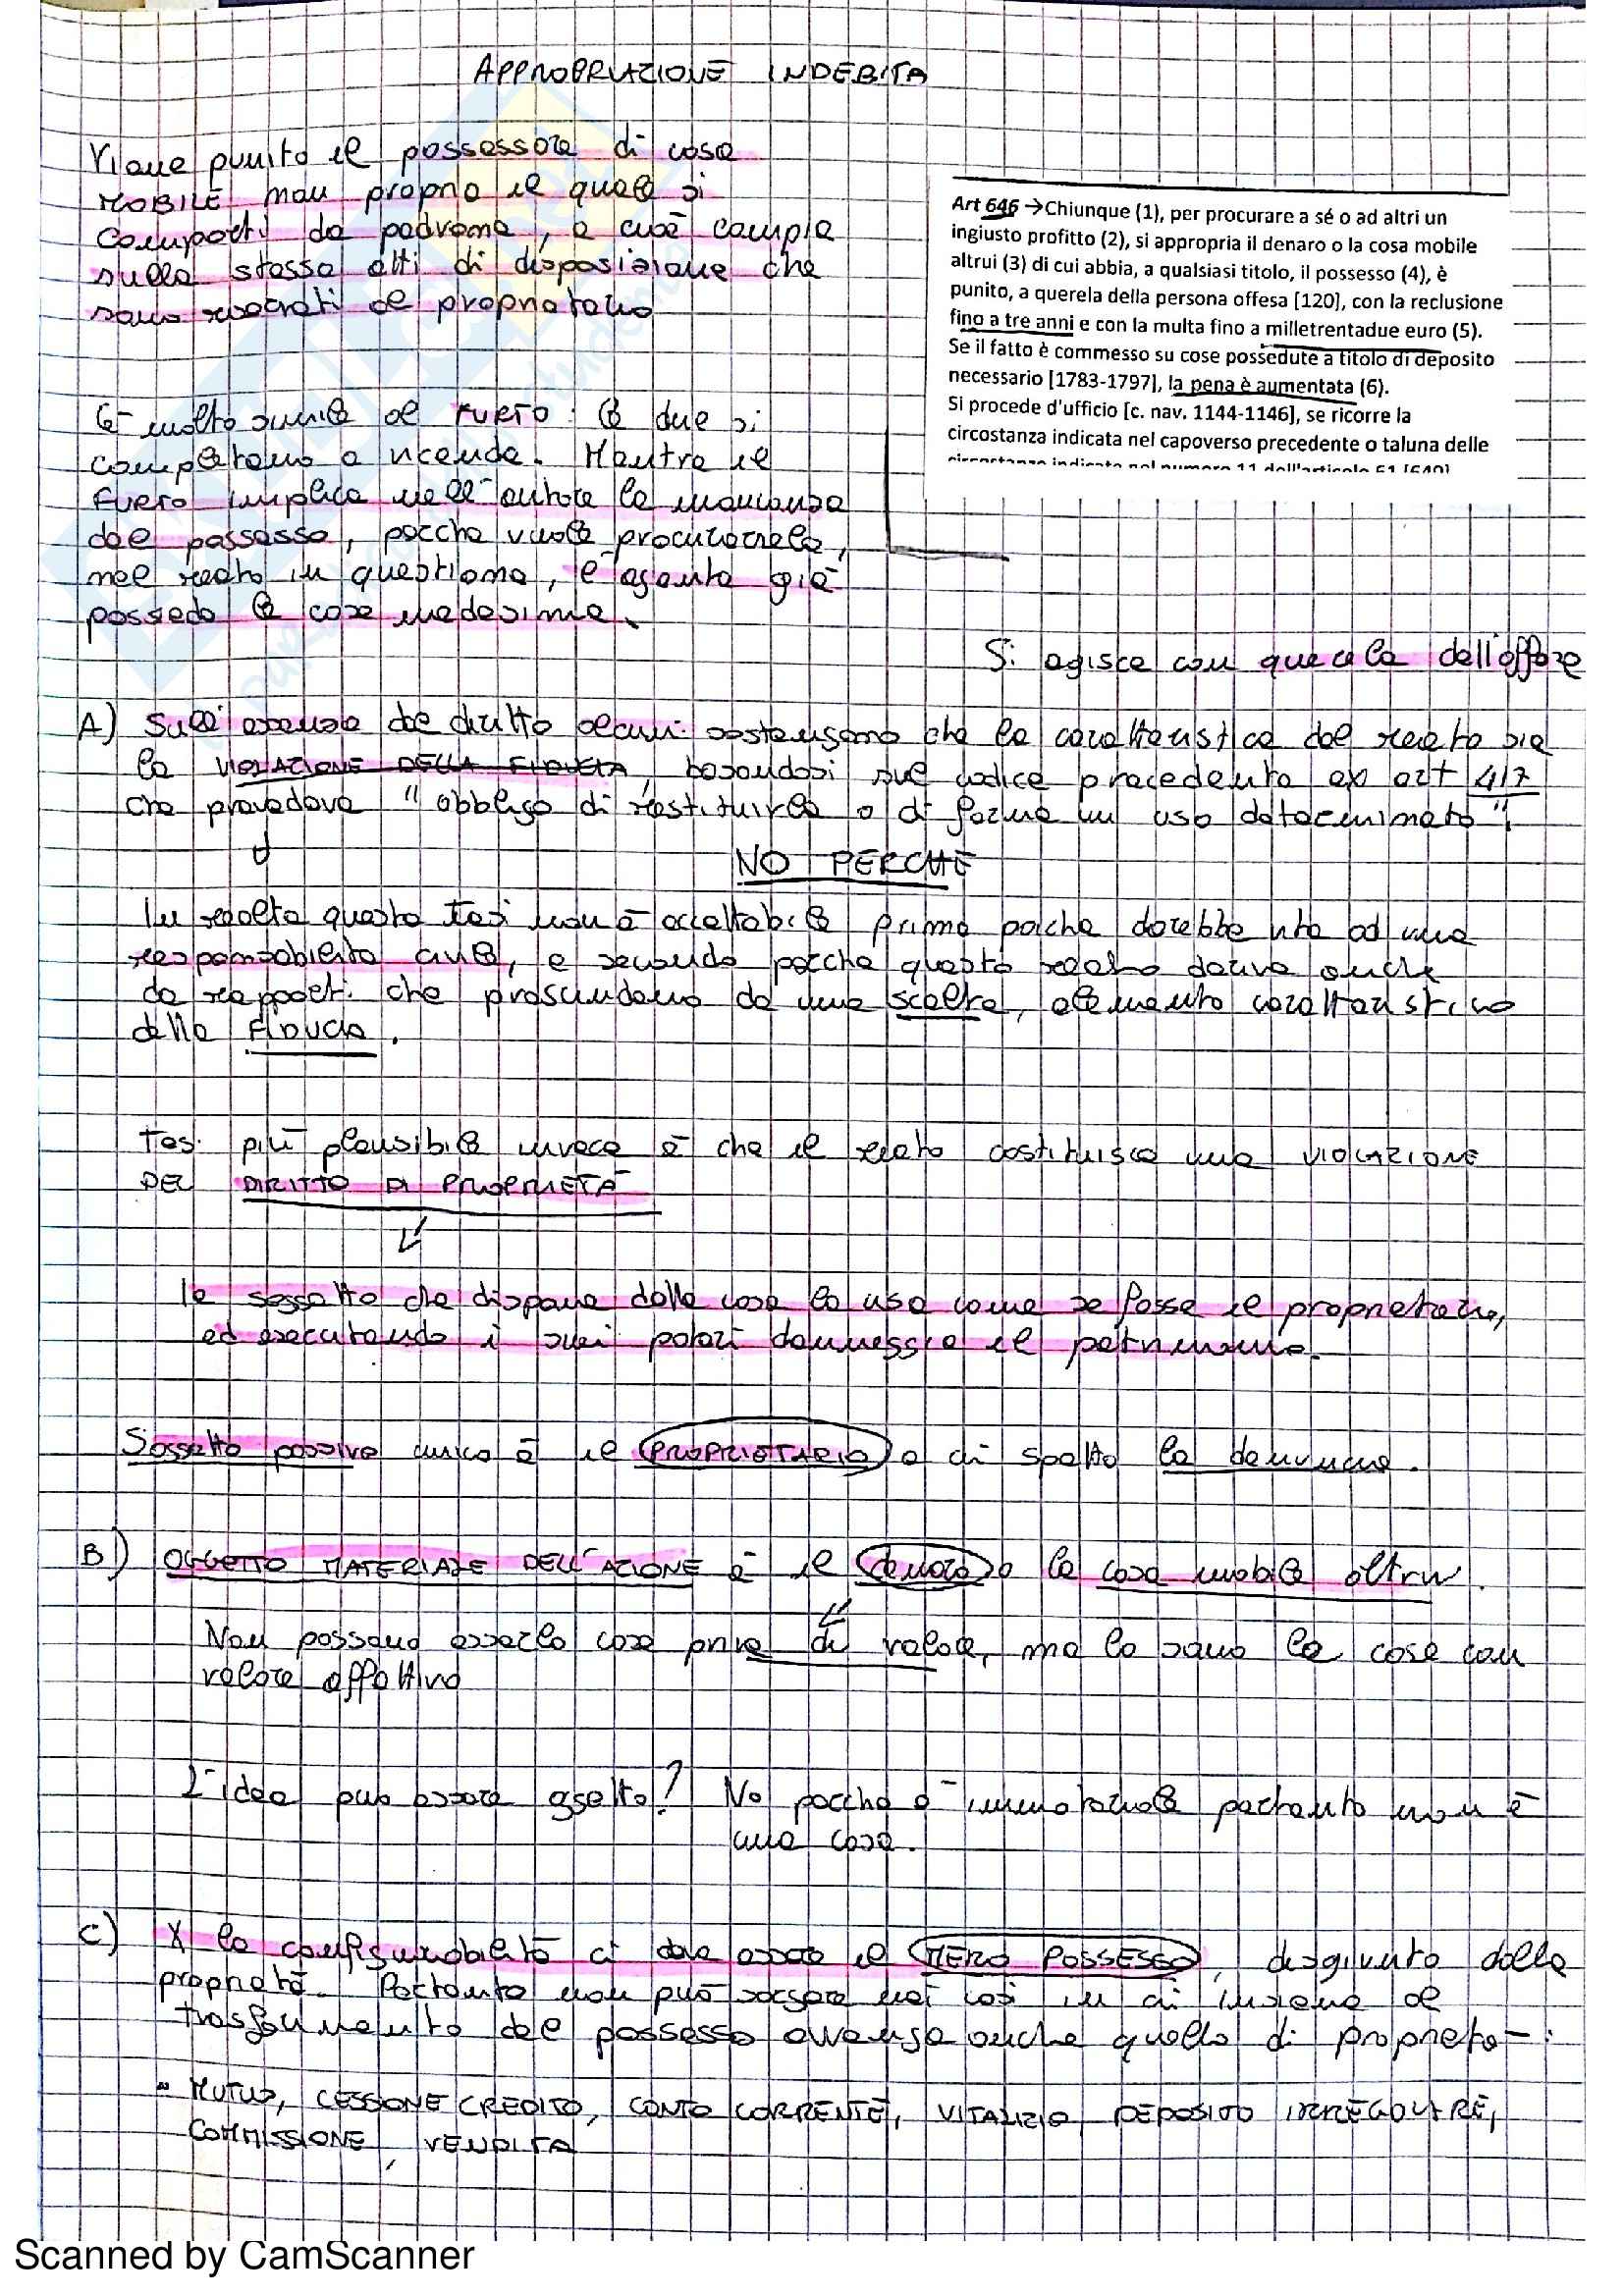 APPROPRIAZIONE INDEBITA
Viene punito il possessore di cosa
MOBILE non propria il quale si
comporti da padrone, e cioè compia
sulla stessa atti di disposizione che
sono riservati al proprietario
Art 646 → Chiunque (1), per procurare a sé o ad altri un
ingiusto profitto (2), si appropria il denaro o la cosa mobile
altrui (3) di cui abbia, a qualsiasi titolo, il possesso (4), è
punito, a querela della persona offesa [120], con la reclusione
fino a tre anni e con la multa fino a milletrentadue euro (5).
Se il fatto è commesso su cose possedute a titolo di deposito
necessario [1783-1797], la pena è aumentata (6).
Si procede d'ufficio [c. nav. 1144-1146], se ricorre la
circostanza indicata nel capoverso precedente o taluna delle
circostanze indicate nel numero 11 dell'articolo 61 [649]
È molto simile al FURTO: le due si
completano a vicenda. Mentre il
FURTO implica nell'autore la mancanza
del possesso, perché vuole procurarselo,
nel reato in questione, l'agente già
possiede la cosa medesima.
Si agisce con querela dell'offeso
A) Sull'essenza del diritto alcuni sostengono che la caratteristica del reato sia
la VIOLAZIONE DELLA FIDUCIA, basandosi sul codice precedente ex art 417
che prevedeva "obbligo di restituirla o di farne un uso determinato".
NO PERCHÉ
In realtà questa tesi non è accettabile primo perché darebbe vita ad una
responsabilità civile, e secondo perché questo reato deriva anche
da rapporti che prescindono da una scelta, elemento caratteristico
della FIDUCIA.
Tesi più plausibile invece è che il reato costituisca una VIOLAZIONE
DEL DIRITTO DI PROPRIETÀ
Il soggetto che dispone della cosa la usa come se fosse il proprietario,
ed esercitando i suoi poteri danneggia il patrimonio.
Soggetto passivo unico è il PROPRIETARIO a cui spetta la denuncia.
B) OGGETTO MATERIALE DELL'AZIONE è il denaro o la cosa mobile altrui.
Non possono esserlo cose prive di valore, ma lo sono le cose con
valore affettivo
L'idea può essere oggetto? No perché è immateriale pertanto non è
una cosa.
C) X la configurabilità ci deve essere il MERO POSSESSO, disgiunto dalla
proprietà. Pertanto non può sorgere nei casi in cui insieme al
trasferimento del possesso avvenga anche quello di proprietà:
- MUTUO, CESSIONE CREDITO, CONTO CORRENTE, VITALIZIO, DEPOSITO IRREGOLARE,
COMMISSIONE, VENDITA
Scanned by CamScanner